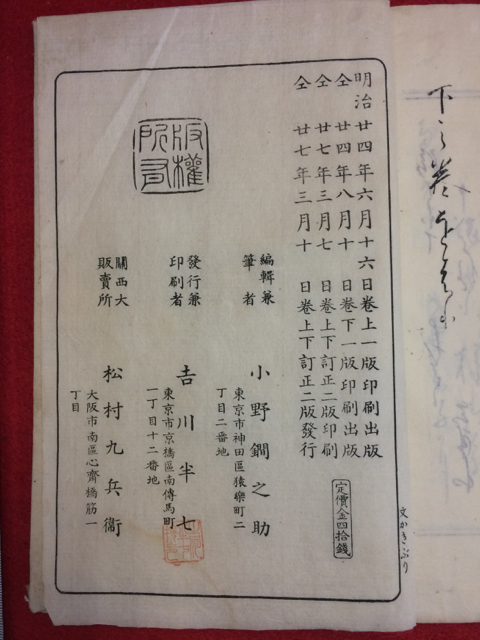 明治廿四年六月十六日卷上一版印刷出版
仝 廿四年八月十 日卷下一版印刷出版
仝 廿七年三月七 日卷上下訂正二版印刷
仝 廿七年三月十 日卷上下訂正二版發行
定價金四拾錢
編輯兼
筆者
小野鐗之助
東京市神田區猿樂町二
丁目二番地
發行兼
印刷者
吉川半七
東京市京橋區南傳馬町
一丁目十二番地
關西大
販賣所
松村九兵衞
大阪市南區心齋橋筋一
丁目
版權
所有
文かきぶり